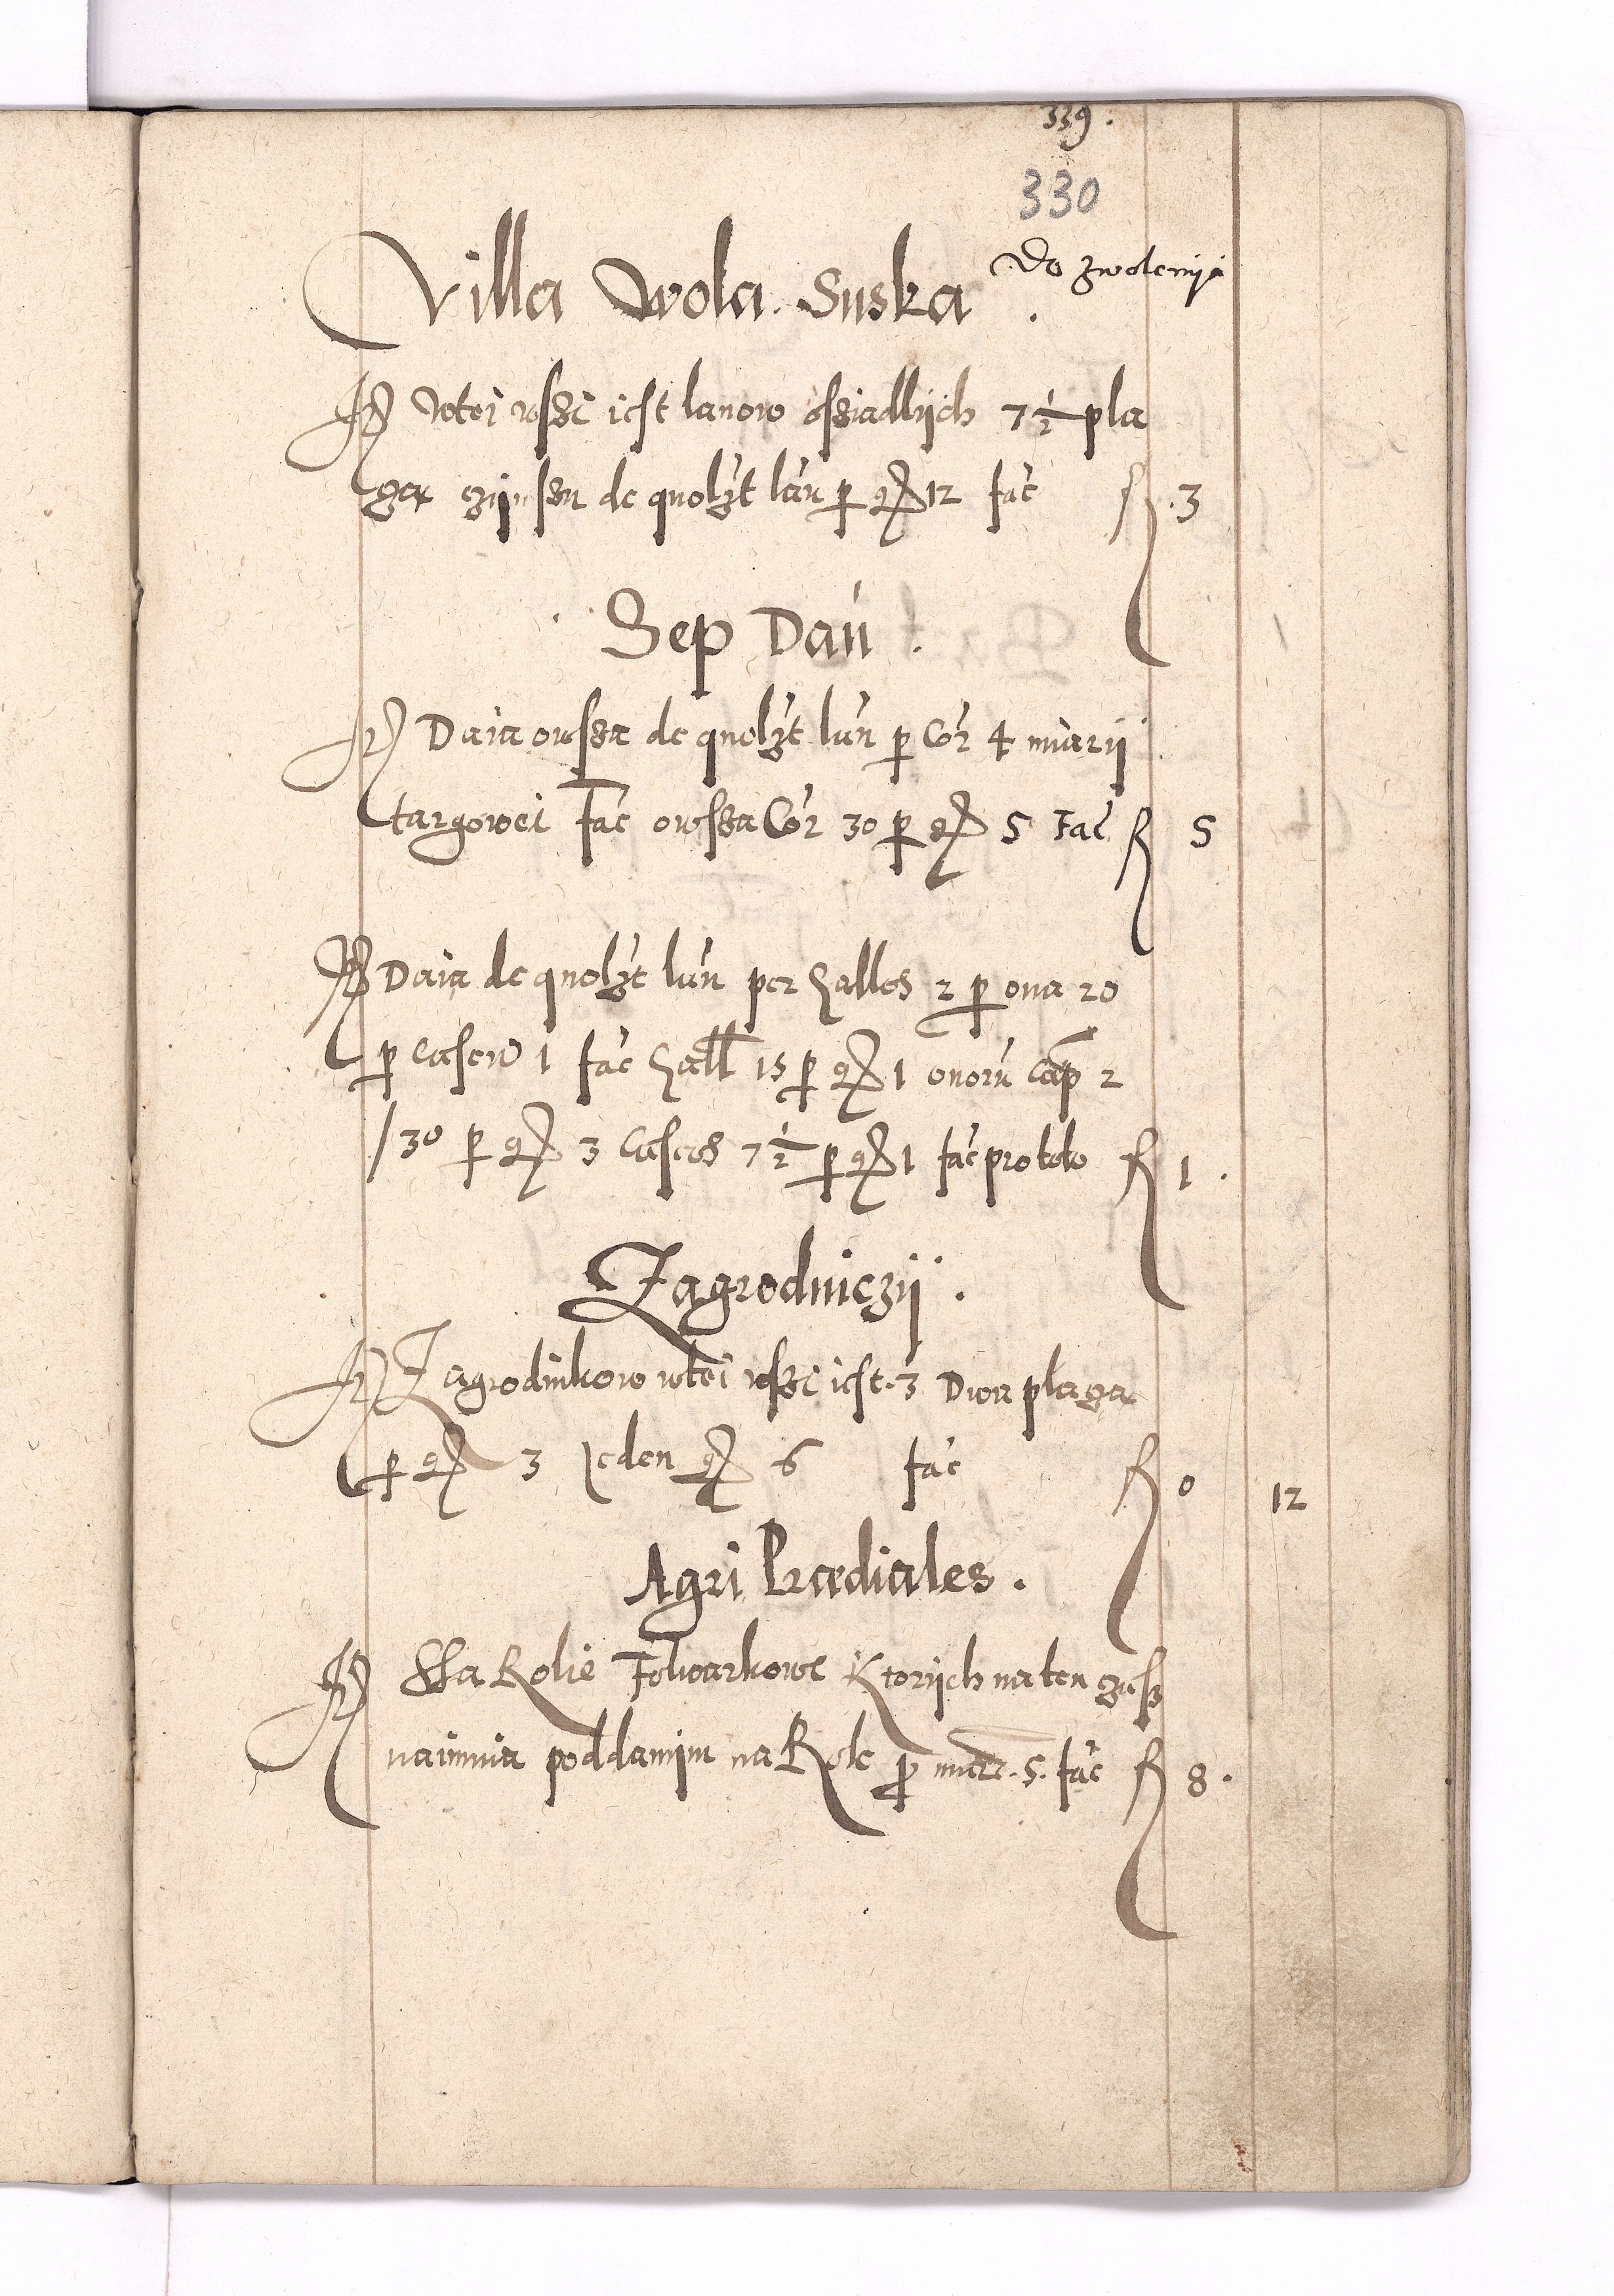 339.
330
Do zwolenija
Villa Wola Suska.
It Wtei wsżi iest lanow osziadlijch 7½ pla
cza cżijnsżu de quolżt lan p gr 12 fac fl. 3
Sep Dan.
It Daia owsza de quolżt lan p Cor 4 miarij
targowei Fac owssa Cor 30 p gr 5 Fac fl 5
It Daia de quolżt lan per Galles 2 p oua 20
p caseu 1 fac Gall 15 p gr 1 ouoru Cap 2
/30 p gr 3 Caseos 7½ p gr 1 fac pro toto fl 1.
Zagrodniczij.
It Zagrodnikow wtei wsżi iest. 3 Dwa placza
p gr 3 Jeden gr 6 fac fl 0 12
Agri Prædiales.
It Ssa Rolie Folwarkowe Ktorijch na ten czass
naimuia poddanim na Role p mrc. 5. fac fl 8.